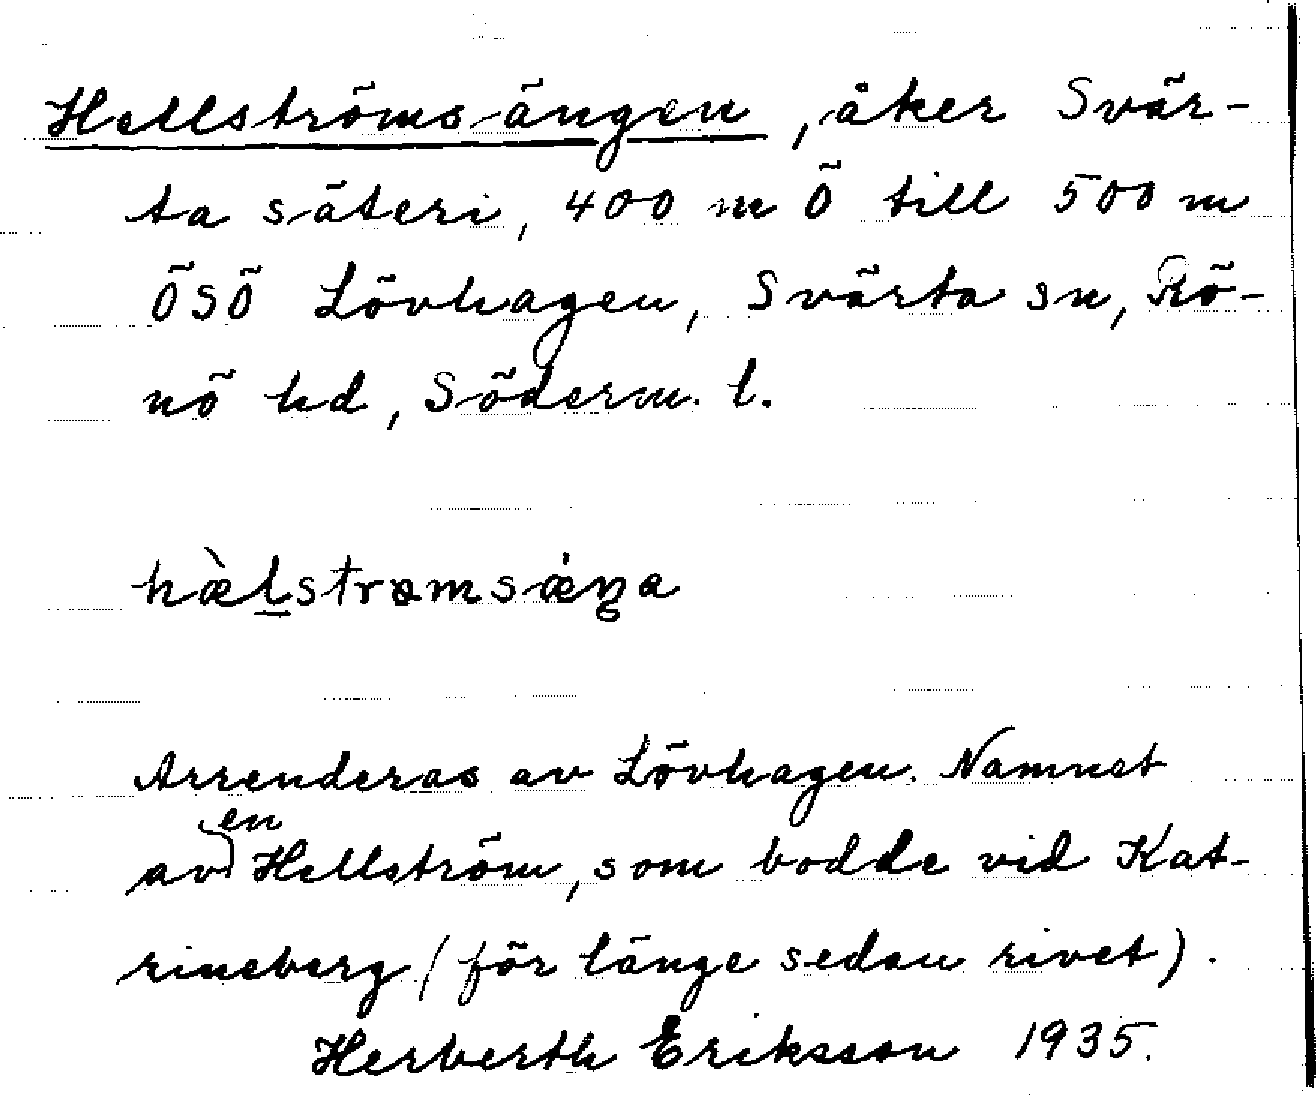 Hellströmsängen, åker Svär-
ta säteri, 400 m Ö till 500 m
ÖSÖ Lövhagen, Svärta sn, Rö-
nö hd, Söderm. l.
hæ̀lstrømsæ̇ŋa
Arrenderas av Lövhagen. Namnet
av en Hellström, som bodde vid Kat-
rineberg (för länge sedan rivet).
Herberth Eriksson 1935.